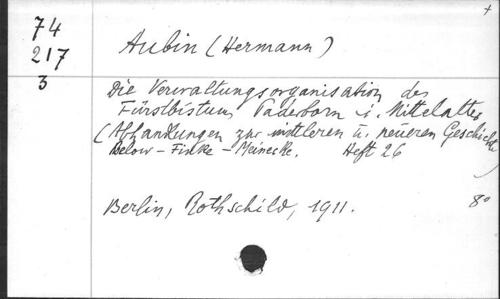 74
217
3
Aubin (Hermann)
Die Verwaltungsorganisation des
Fürstbistums Paderborn i. Mittelalter
(Abhandlungen zur mittleren u. neueren Geschichte
Below - Finke - Meinecke. Heft 26
Berlin, Rothschild, 1911.
8°